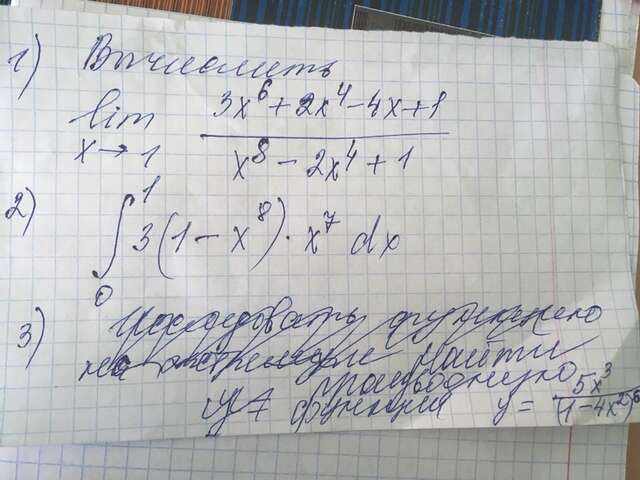 1) Вычислить
lim x→1 (3x⁶ + 2x⁴ - 4x + 1) / (x⁸ - 2x⁴ + 1)
2) ∫₀¹ 3(1 - x⁸) · x⁷ dx
3) Исследовать функцию
на экстремум Найти
производную
функции y = 5x³ / (1 - 4x²)⁶